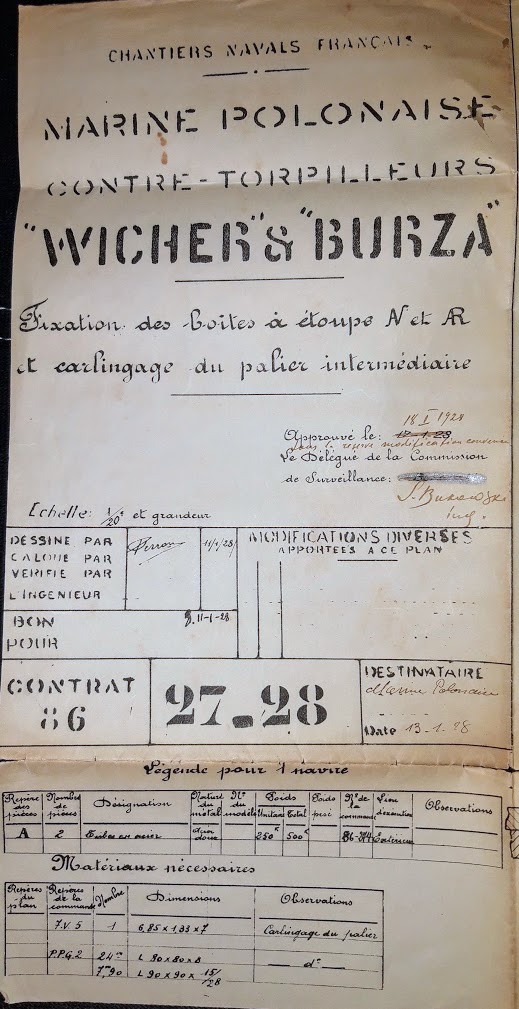 CHANTIERS NAVALS FRANÇAIS
MARINE POLONAISE
CONTRE-TORPILLEURS
"WICHER" & "BURZA"
Fixation des boîtes à étoupe AV et AR
et carlingage du palier intermédiaire
18 I 1928
Approuvé le: 12-1-28
sous la réserve modification convenue
Le Délégué de la Commission
de Surveillance:
Ing.
Echelle: 1/20e et grandeur
DESSINE PAR
CALQUE PAR
VERIFIE PAR
L'INGENIEUR
11/1/28
MODIFICATIONS DIVERSES
APPORTEES A CE PLAN
BON
POUR
11-1-28
CONTRAT
86
27-28
DESTINATAIRE
Polonaise
Date 13-1-28
Légende pour 1 navire
Repère des pièces Nombre de pièces Désignation Nature du métal N° du modèle Poids Unitaire Total Poids pesé N° de la commande Lieu d'exécution Observations
A 2 Tubes en acier doux 250k 500k Extérieur
Matériaux nécessaires
Repères du plan Repères de la commande Nombre Dimensions Observations
T.V. 5 1 6,85 x 1,33 x 7 Carlingage du palier
P.P.G. 2 24m L 80 x 80 x 8 do
7m,90 L 90 x 90 x 15/28